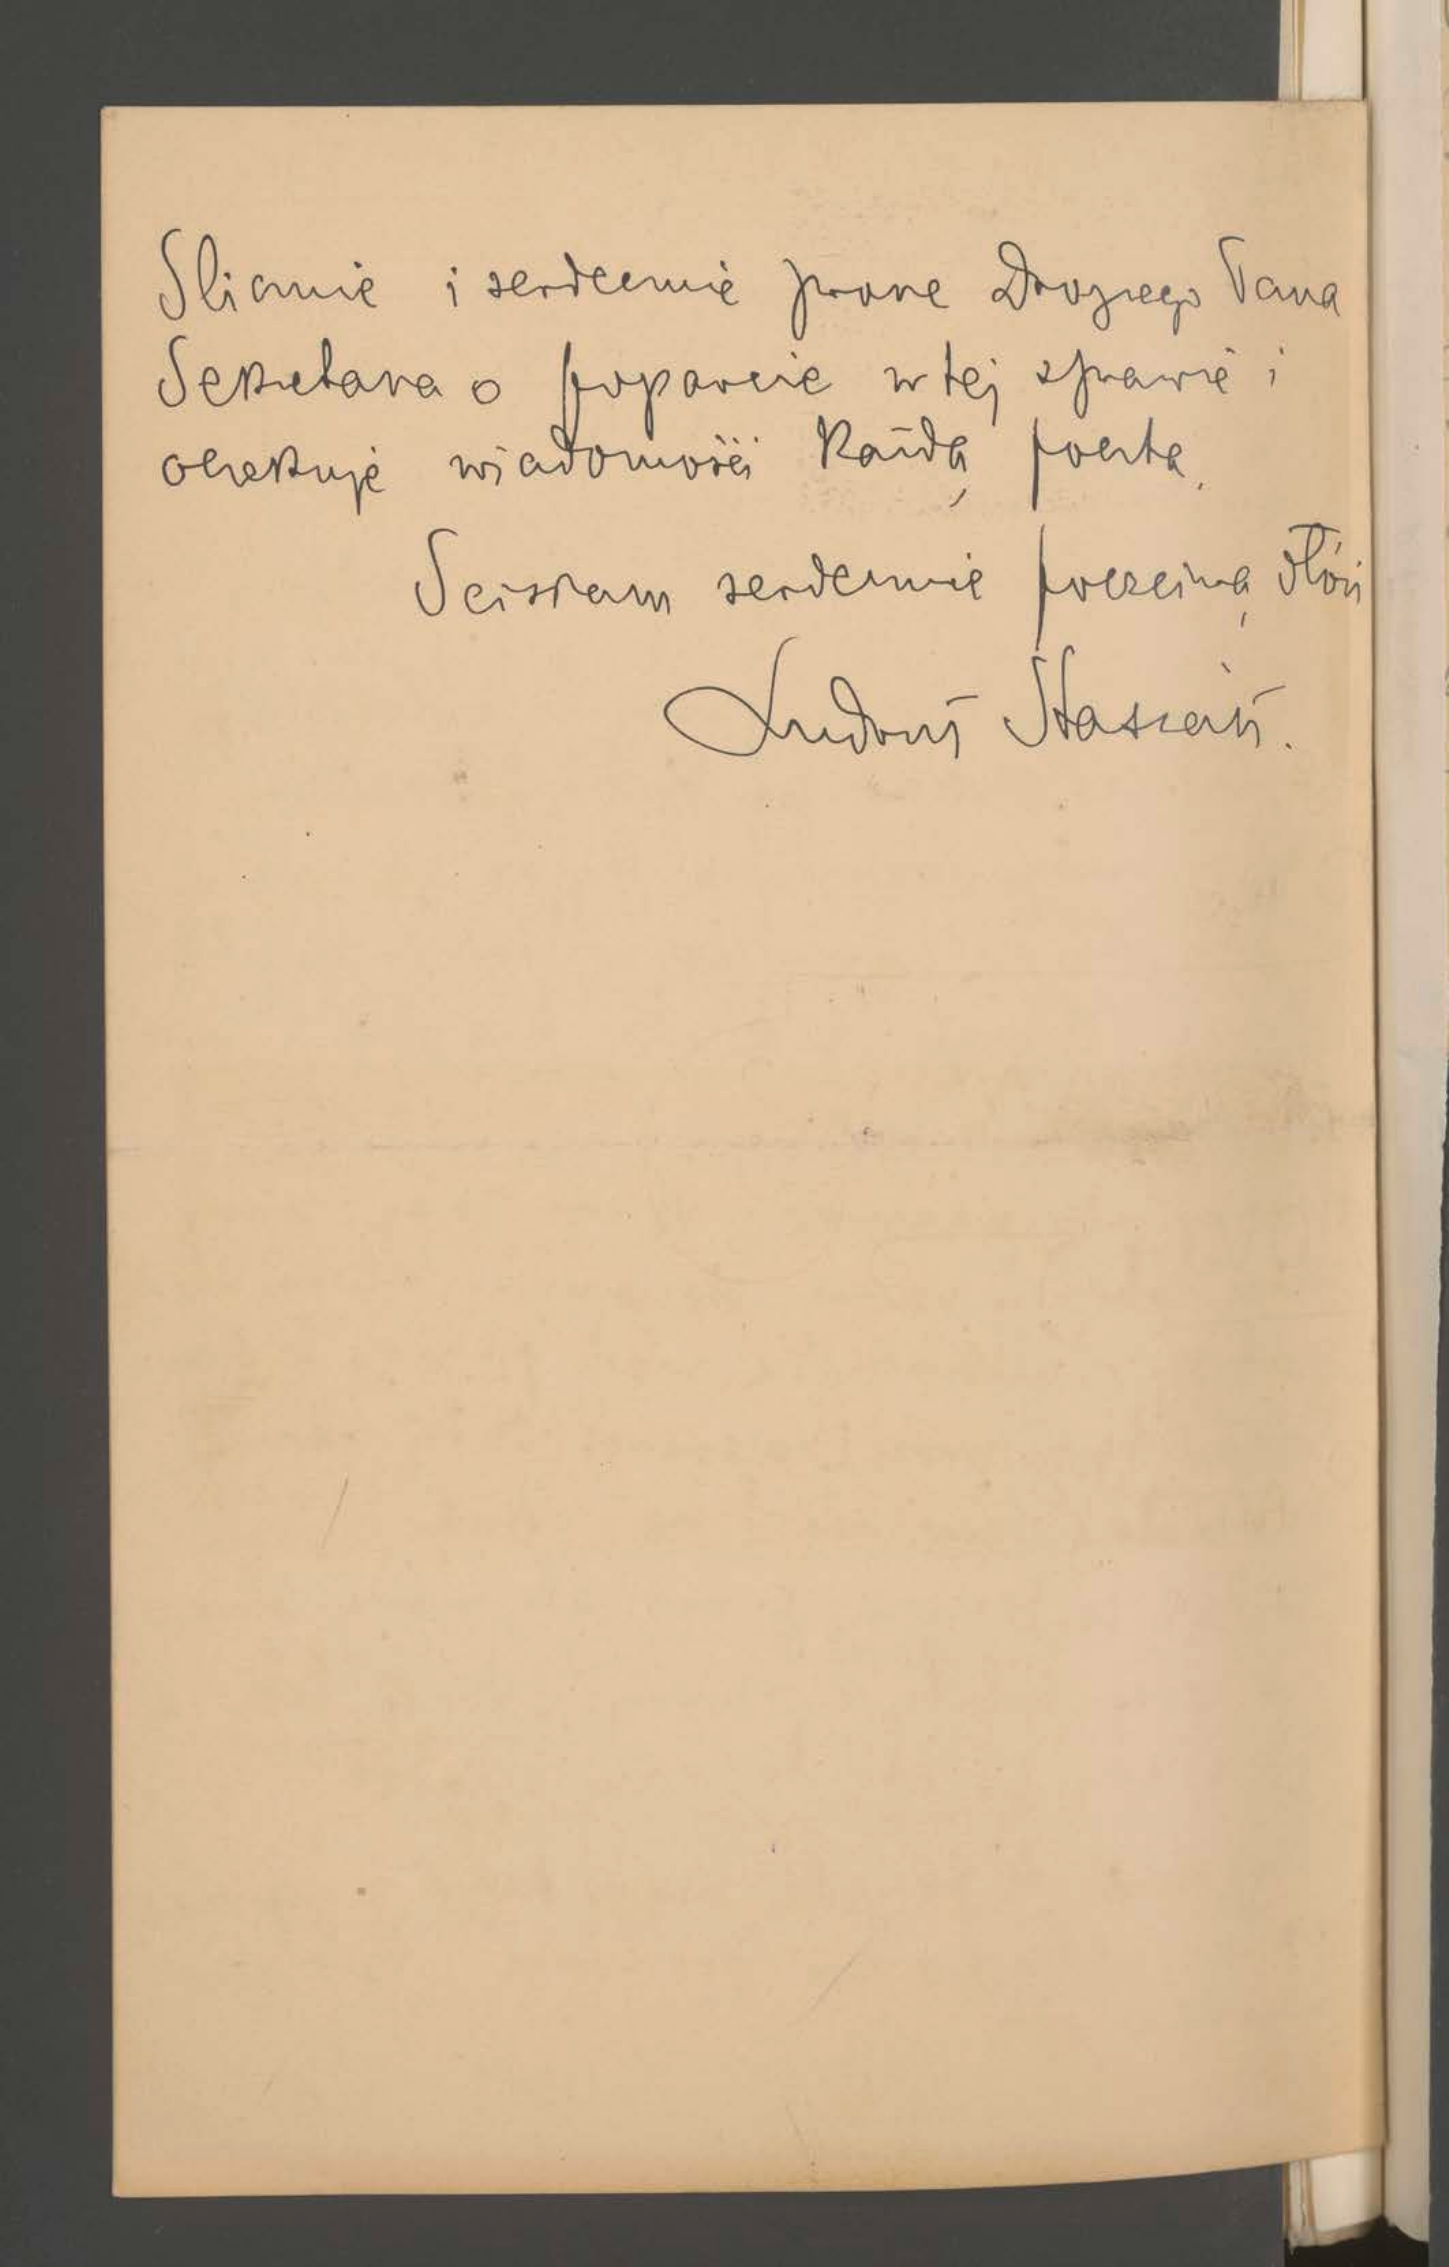 Ślicznie i serdecznie proszę Drogiego Pana
Sekretarza o poparcie w tej sprawie i
oczekuję wiadomości każdą pocztą.
Ściskam serdecznie poczciwą dłoń
Ludwik Stasiak.